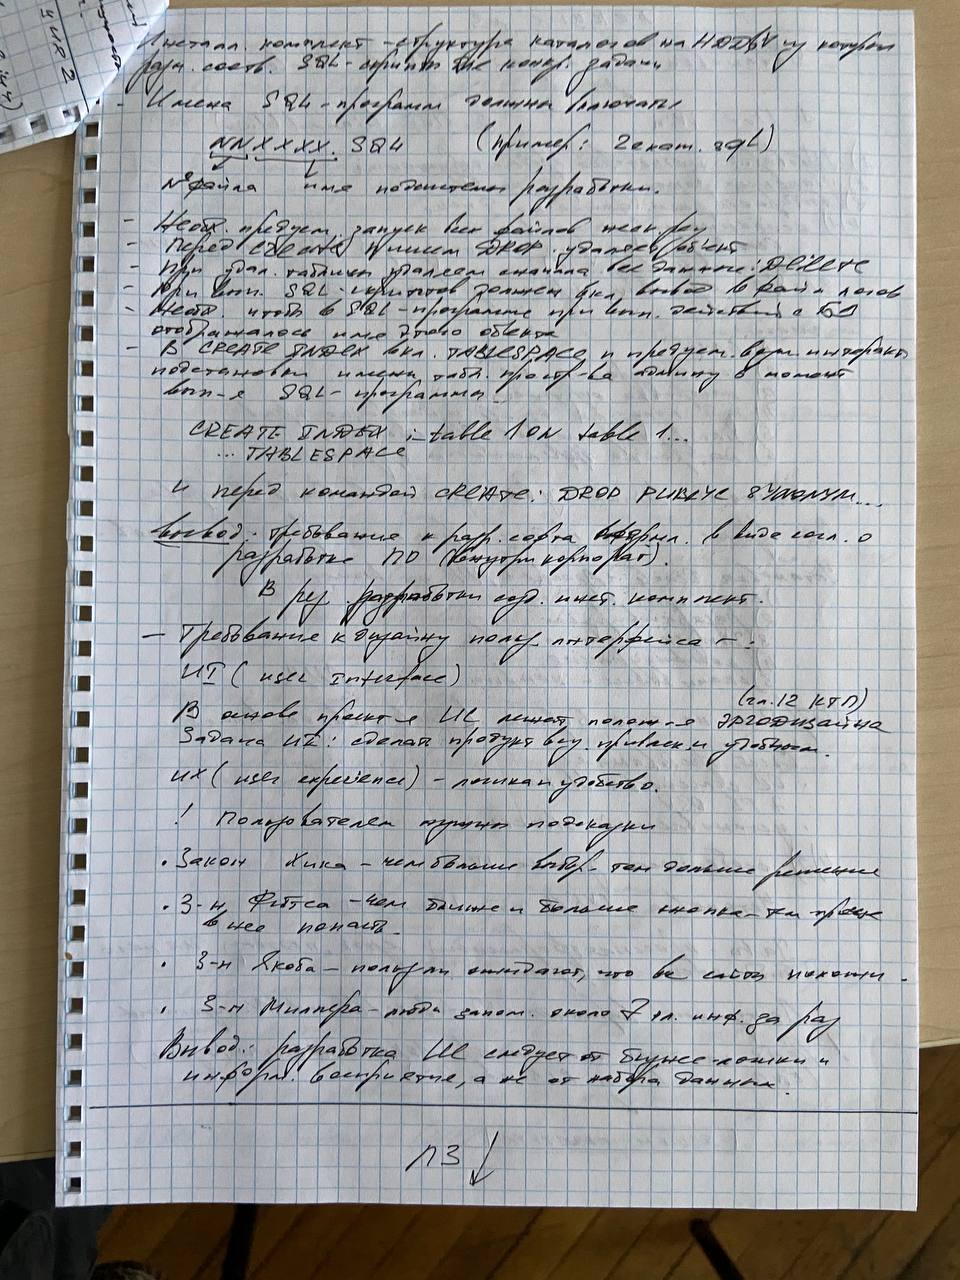 Инсталл. комплект - структура каталогов на НЖМД, из которой
разм. соотв. SQL-скрипты конкр. задачи
- Имена SQL-программ должны включать
NNXXXX.SQL (пример: 2cкат.sql)
№ файла имя подсистемы разработки.
- Необх. предусм. запуск всех файлов
- Перед CREATE пишем DROP. удаляет объект
- При удал. таблицы удаляем сначала все данные: Delete
- При вып. SQL-скриптов должен быть вывод в файл логов
- Необх. чтобы в SQL-программе при вып. действий с БД
отображалось имя этого объекта
- В CREATE INDEX вкл. TABLESPACE и предусм. возм. интеракт.
подстановки имени табл. простр-ва админу в момент
вып-я SQL-программы.
CREATE INDEX i-table 1 ON table 1...
... TABLESPACE
и перед командой CREATE: DROP PUBLIC SYNONYM...
Вывод: требование к разр. софта в виде согл. о
разработке ПО (внутрикорпорат).
В рез. разработки созд. инст. комплект.
- Требование к дизайну польз. интерфейса - :
UI (user Interface)
(гл.12 КТП)
В основе проект-я UI лежат полож-я эргодизайна
Задача UI: сделать продукт виз. привлек. и удобным.
UX (user experience) - логика и удобство.
! Пользователям нужны подсказки
. Закон Хика - чем больше выбор - тем дольше решение
. З-н Фиттса - чем ближе и больше кнопка - тем проще
в нее попасть.
. З-н Якоба - польз-ли ожидают, что все сайты похожи.
. З-н Миллера - люди запом. около 7 эл. инф. за раз
Вывод: разработка UI следует от бизнес-логики и
информ. восприятие, а не от набора данных.
ЛЗ ↓
ЧИК 2